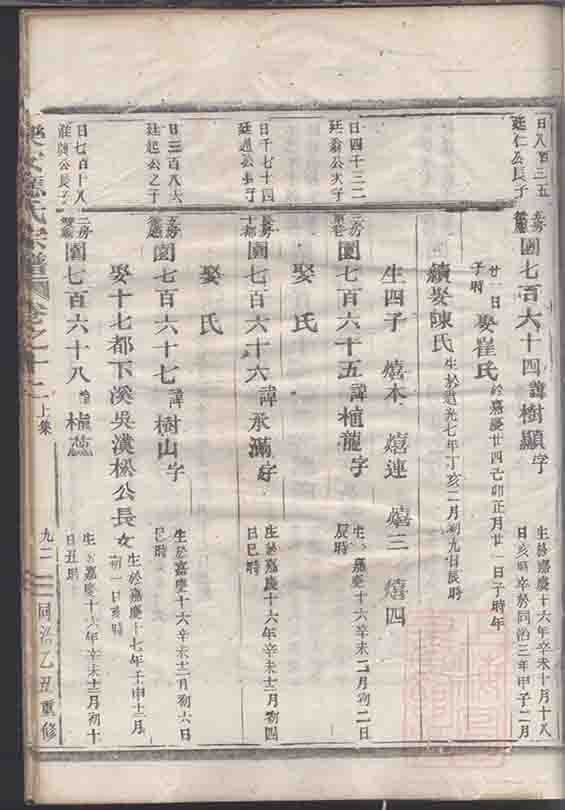 日八百三五
廷仁公長子
五房
園七百六十四諱樹顯字
生於嘉慶十六年辛未十月十八
日亥時卒於同治三年甲子二月
廿一日
子時
娶崔氏
於嘉慶廿四己卯正月廿一日子時年
續娶陳氏
生於道光七年丁亥二月初九日辰時
生四子 熺木 熺連 熺三 熺四
日四千三二
廷翁公次子
三房
園七百六十五諱植龍字
生於嘉慶十六辛未二月初二日
辰時
娶氏
日千七十四
廷通公長子
長房
十都
園七百六十六諱承滿字
生於嘉慶十六年辛未十二月初四
日巳時
娶氏
日三百八六
廷起公之子
五房
園七百六十七諱樹山字
生於嘉慶十六辛未十二月初六日
巳時
娶十七都下溪吳漢松公長女
生於嘉慶十七年壬申十二月
初一日亥時
日七百十八
公長子
二房
園七百六十八諱植
生於嘉慶十六年辛未十二月初十
日丑時
氏宗譜 卷之十二 上集
九二
同治乙丑重修